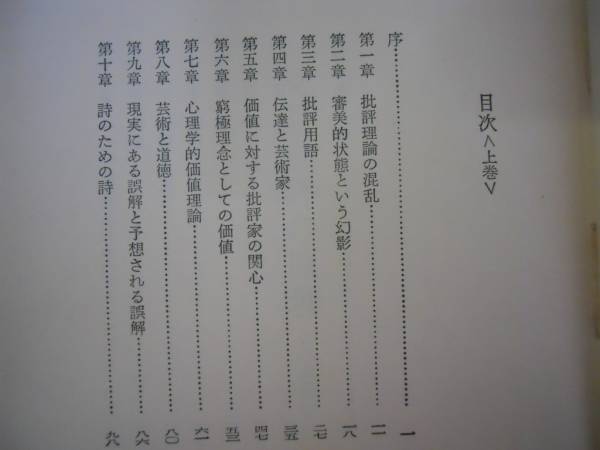 目次〈上巻〉
序……………………一
第一章 批評理論の混乱……………………一一
第二章 審美的状態という幻影……………………一八
第三章 批評用語……………………二七
第四章 伝達と芸術家……………………三五
第五章 価値に対する批評家の関心……………………四七
第六章 窮極理念としての価値……………………五三
第七章 心理学的価値理論……………………六一
第八章 芸術と道徳……………………八〇
第九章 現実にある誤解と予想される誤解……………………八六
第十章 詩のための詩……………………九八